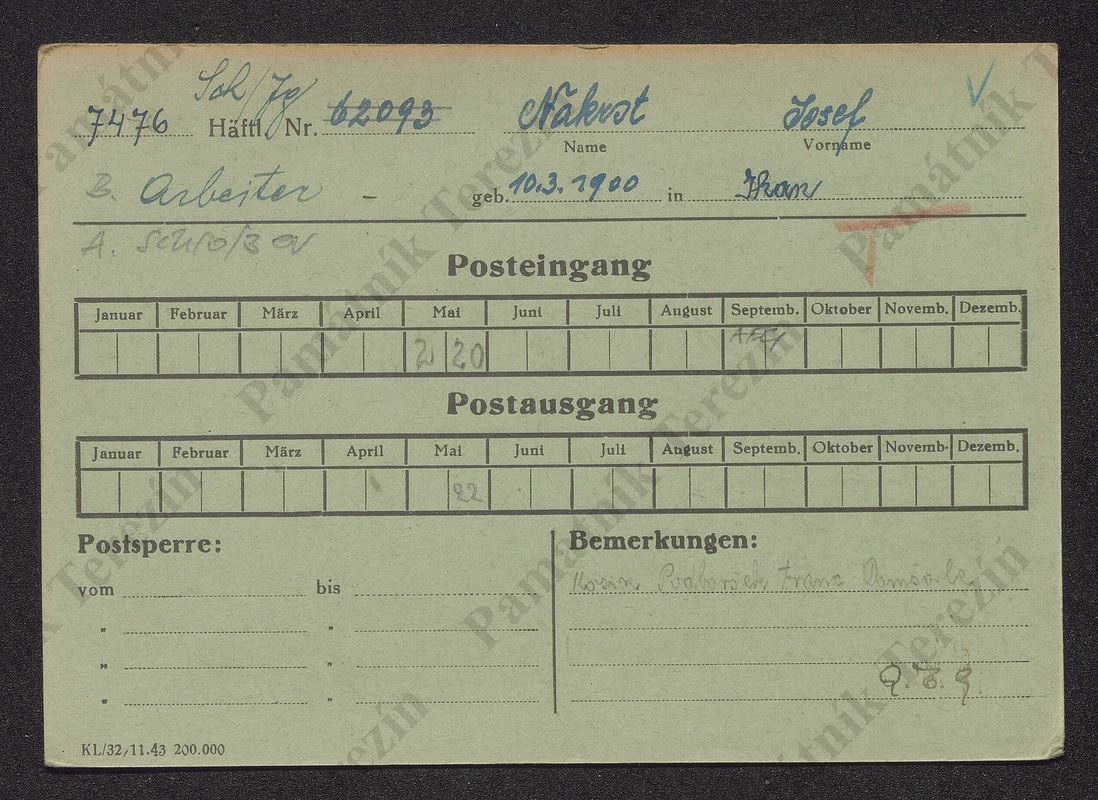 Sch/Jg
7476 Häftl. Nr. 62093 Nákrst Josef
Name Vorname
B. Arbeiter – geb. 10.3.1900 in
A.
Posteingang
Januar Februar März April Mai Juni Juli August Septemb. Oktober Novemb. Dezemb.
2 20
Postausgang
Januar Februar März April Mai Juni Juli August Septemb. Oktober Novemb. Dezemb.
22
Postsperre: Bemerkungen:
vom bis
Franc
" "
" "
" "
KL/32, 11.43 200.000
Památník Terezín